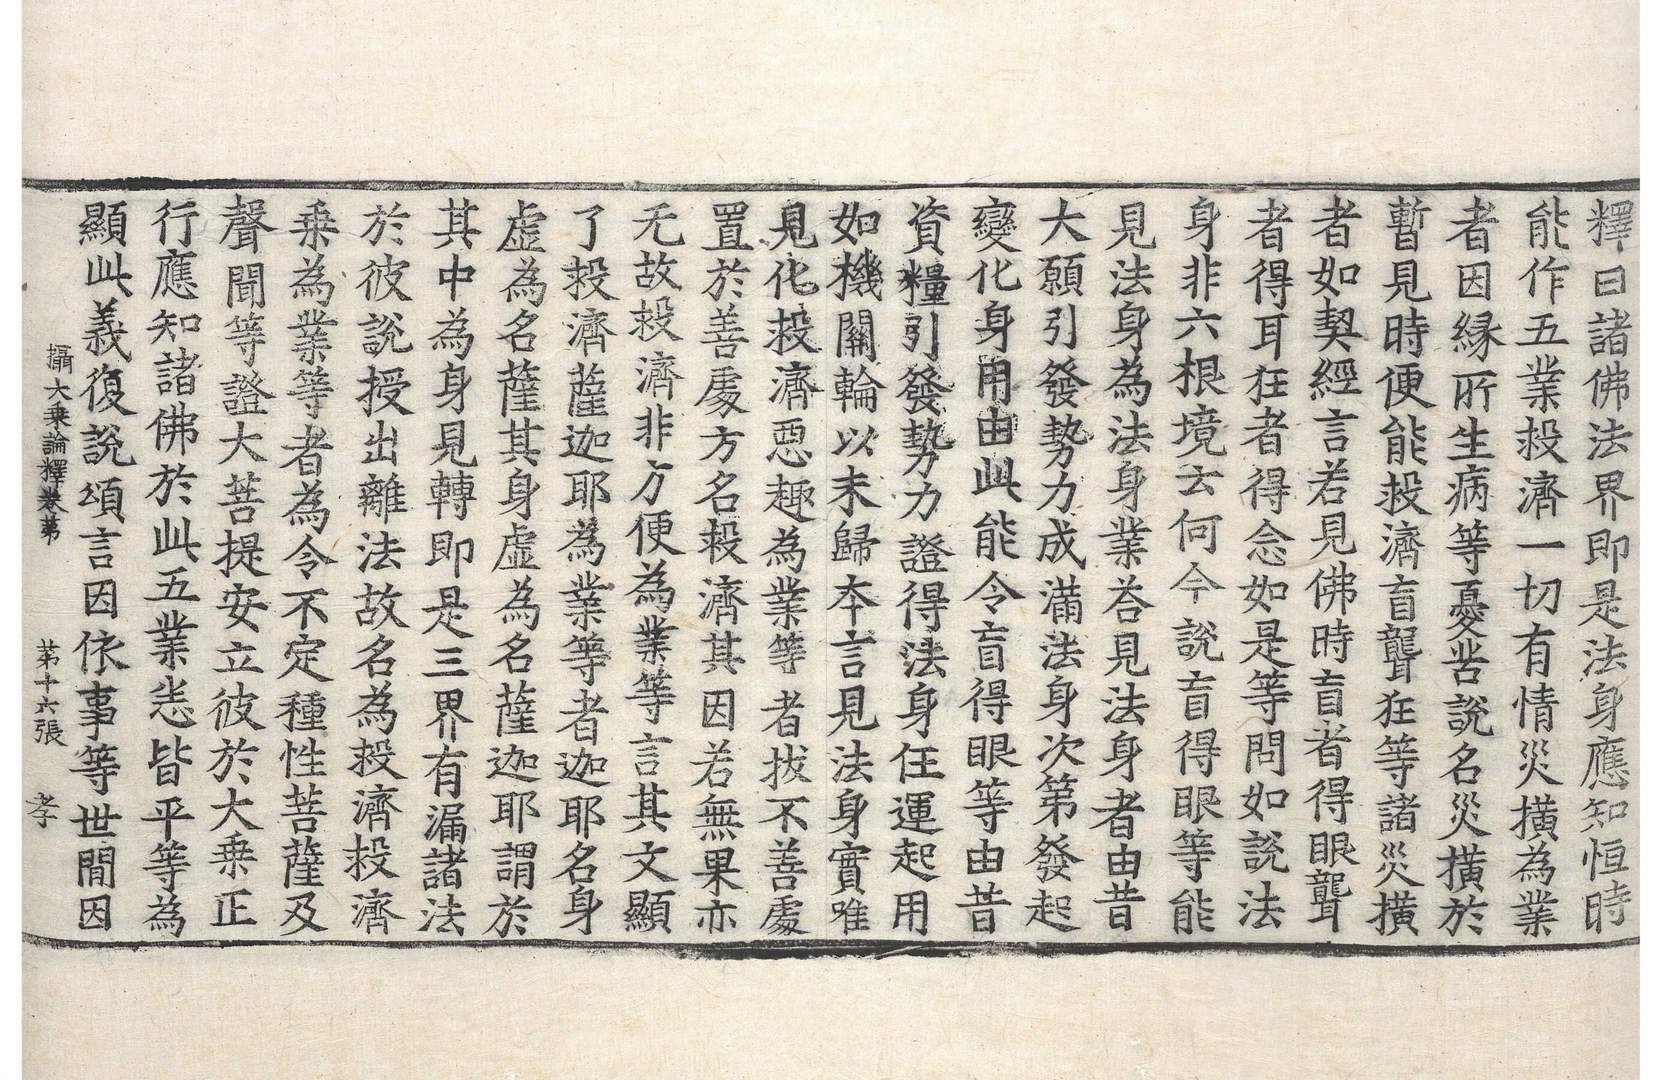 釋曰諸佛法界即是法身應知恒時
能作五業救濟一切有情災橫為業
者因緣所生病等憂苦說名災橫於
暫見時便能救濟盲聾狂等諸災橫
者如契經言若見佛時盲者得眼聾
者得耳狂者得念如是等問如說法
身非六根境云何今說盲得眼等能
見法身為法身業荅見法身者由昔
大願引發勢力成滿法身次第發起
變化身用由此能令盲得眼等由昔
資糧引發勢力證得法身任運起用
如機關輪以末歸本言見法身實唯
見化救濟惡趣為業等者拔不善處
置於善處方名救濟其因若無果亦
无故救濟非方便為業等言其文顯
了救濟薩迦耶為業等者迦耶名身
虛為名薩其身虛為名薩迦耶謂於
其中為身見轉即是三界有漏諸法
於彼說授出離法故名為救濟救濟
乘為業等者為令不定種性菩薩及
聲聞等證大菩提安立彼於大乘正
行應知諸佛於此五業悉皆平等為
顯此義復說頌言因依事等世間因
攝大乘論釋卷苐 苐十六張 孝